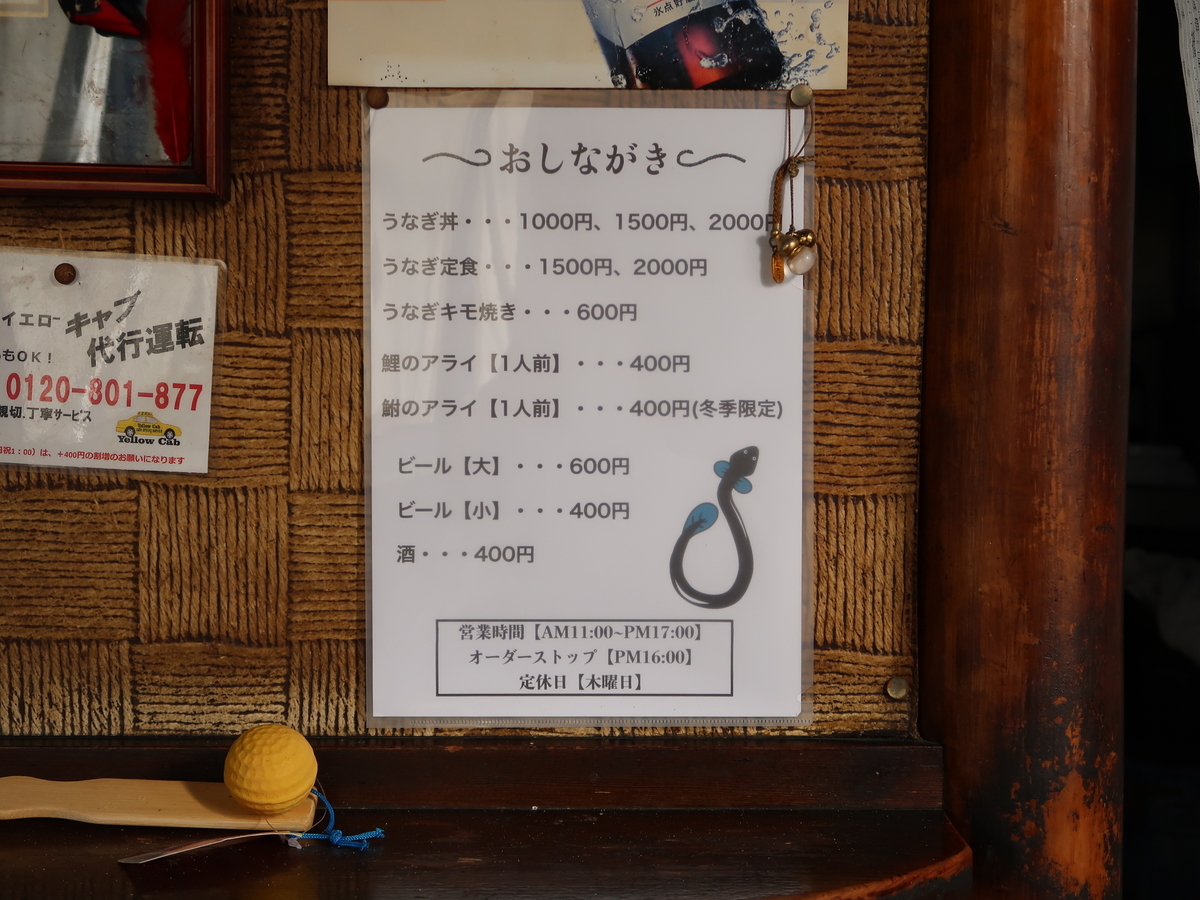 氷点貯
おしながき
うなぎ丼・・・1000円、1500円、2000円
うなぎ定食・・・1500円、2000円
うなぎキモ焼き・・・600円
鯉のアライ【1人前】・・・400円
鮒のアライ【1人前】・・・400円(冬季限定)
ビール【大】・・・600円
ビール【小】・・・400円
酒・・・400円
営業時間【AM11:00~PM17:00】
オーダーストップ【PM16:00】
定休日【木曜日】
イエローキャブ
代行運転
もOK!
0120-801-877
親切.丁寧サービス
Yellow Cab
日祝1:00)は、+400円の割増のお願いになります